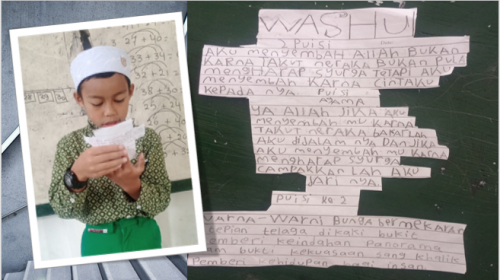 WASHU
2 PUISI
AKU menyembah Allah BUKAN
KARNA TAKUT neraka BUKAN PULA
mengHarap syurga TETAPI AKU
menyembah Karna CINTAKU
KEPADA nya. PUISI
YA ALLAH JIKA AKU
menyembah mu KARNA
TAKUT neraka BAKARLAH
AKU diDALAM nya DAN JIKA
AKU menyembah mu Karna
mengHarap syurga
CAMPAKKAN LAH AKU
DARI nya.
PUISI ke 2
Warna-warni Bunga bermekaran
telaga dikaki bukit
memberi keindahan Panorama
bukti kekuasaan sang khalik
Pemberi kehidupan bagi insan